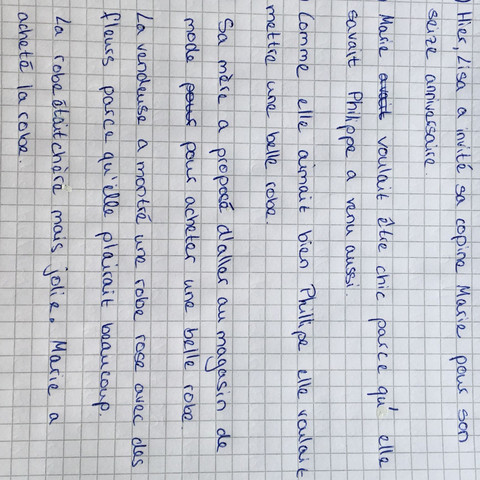 ) Hier, Lisa a invité sa copine Marie pour son
seize anniversaire
) Marie voulait être chic parce qu' elle
savait Philippe a venu aussi.
) Comme elle aimait bien Phillipe elle voulait
mettre une belle robe.
Sa mère a proposé d'aller au magasin de
mode pour acheter une belle robe.
La vendeuse a montré une robe rose avec des
fleurs parce qu'elle plairait beaucoup.
La robe était chère mais jolie. Marie a
acheté la robe.